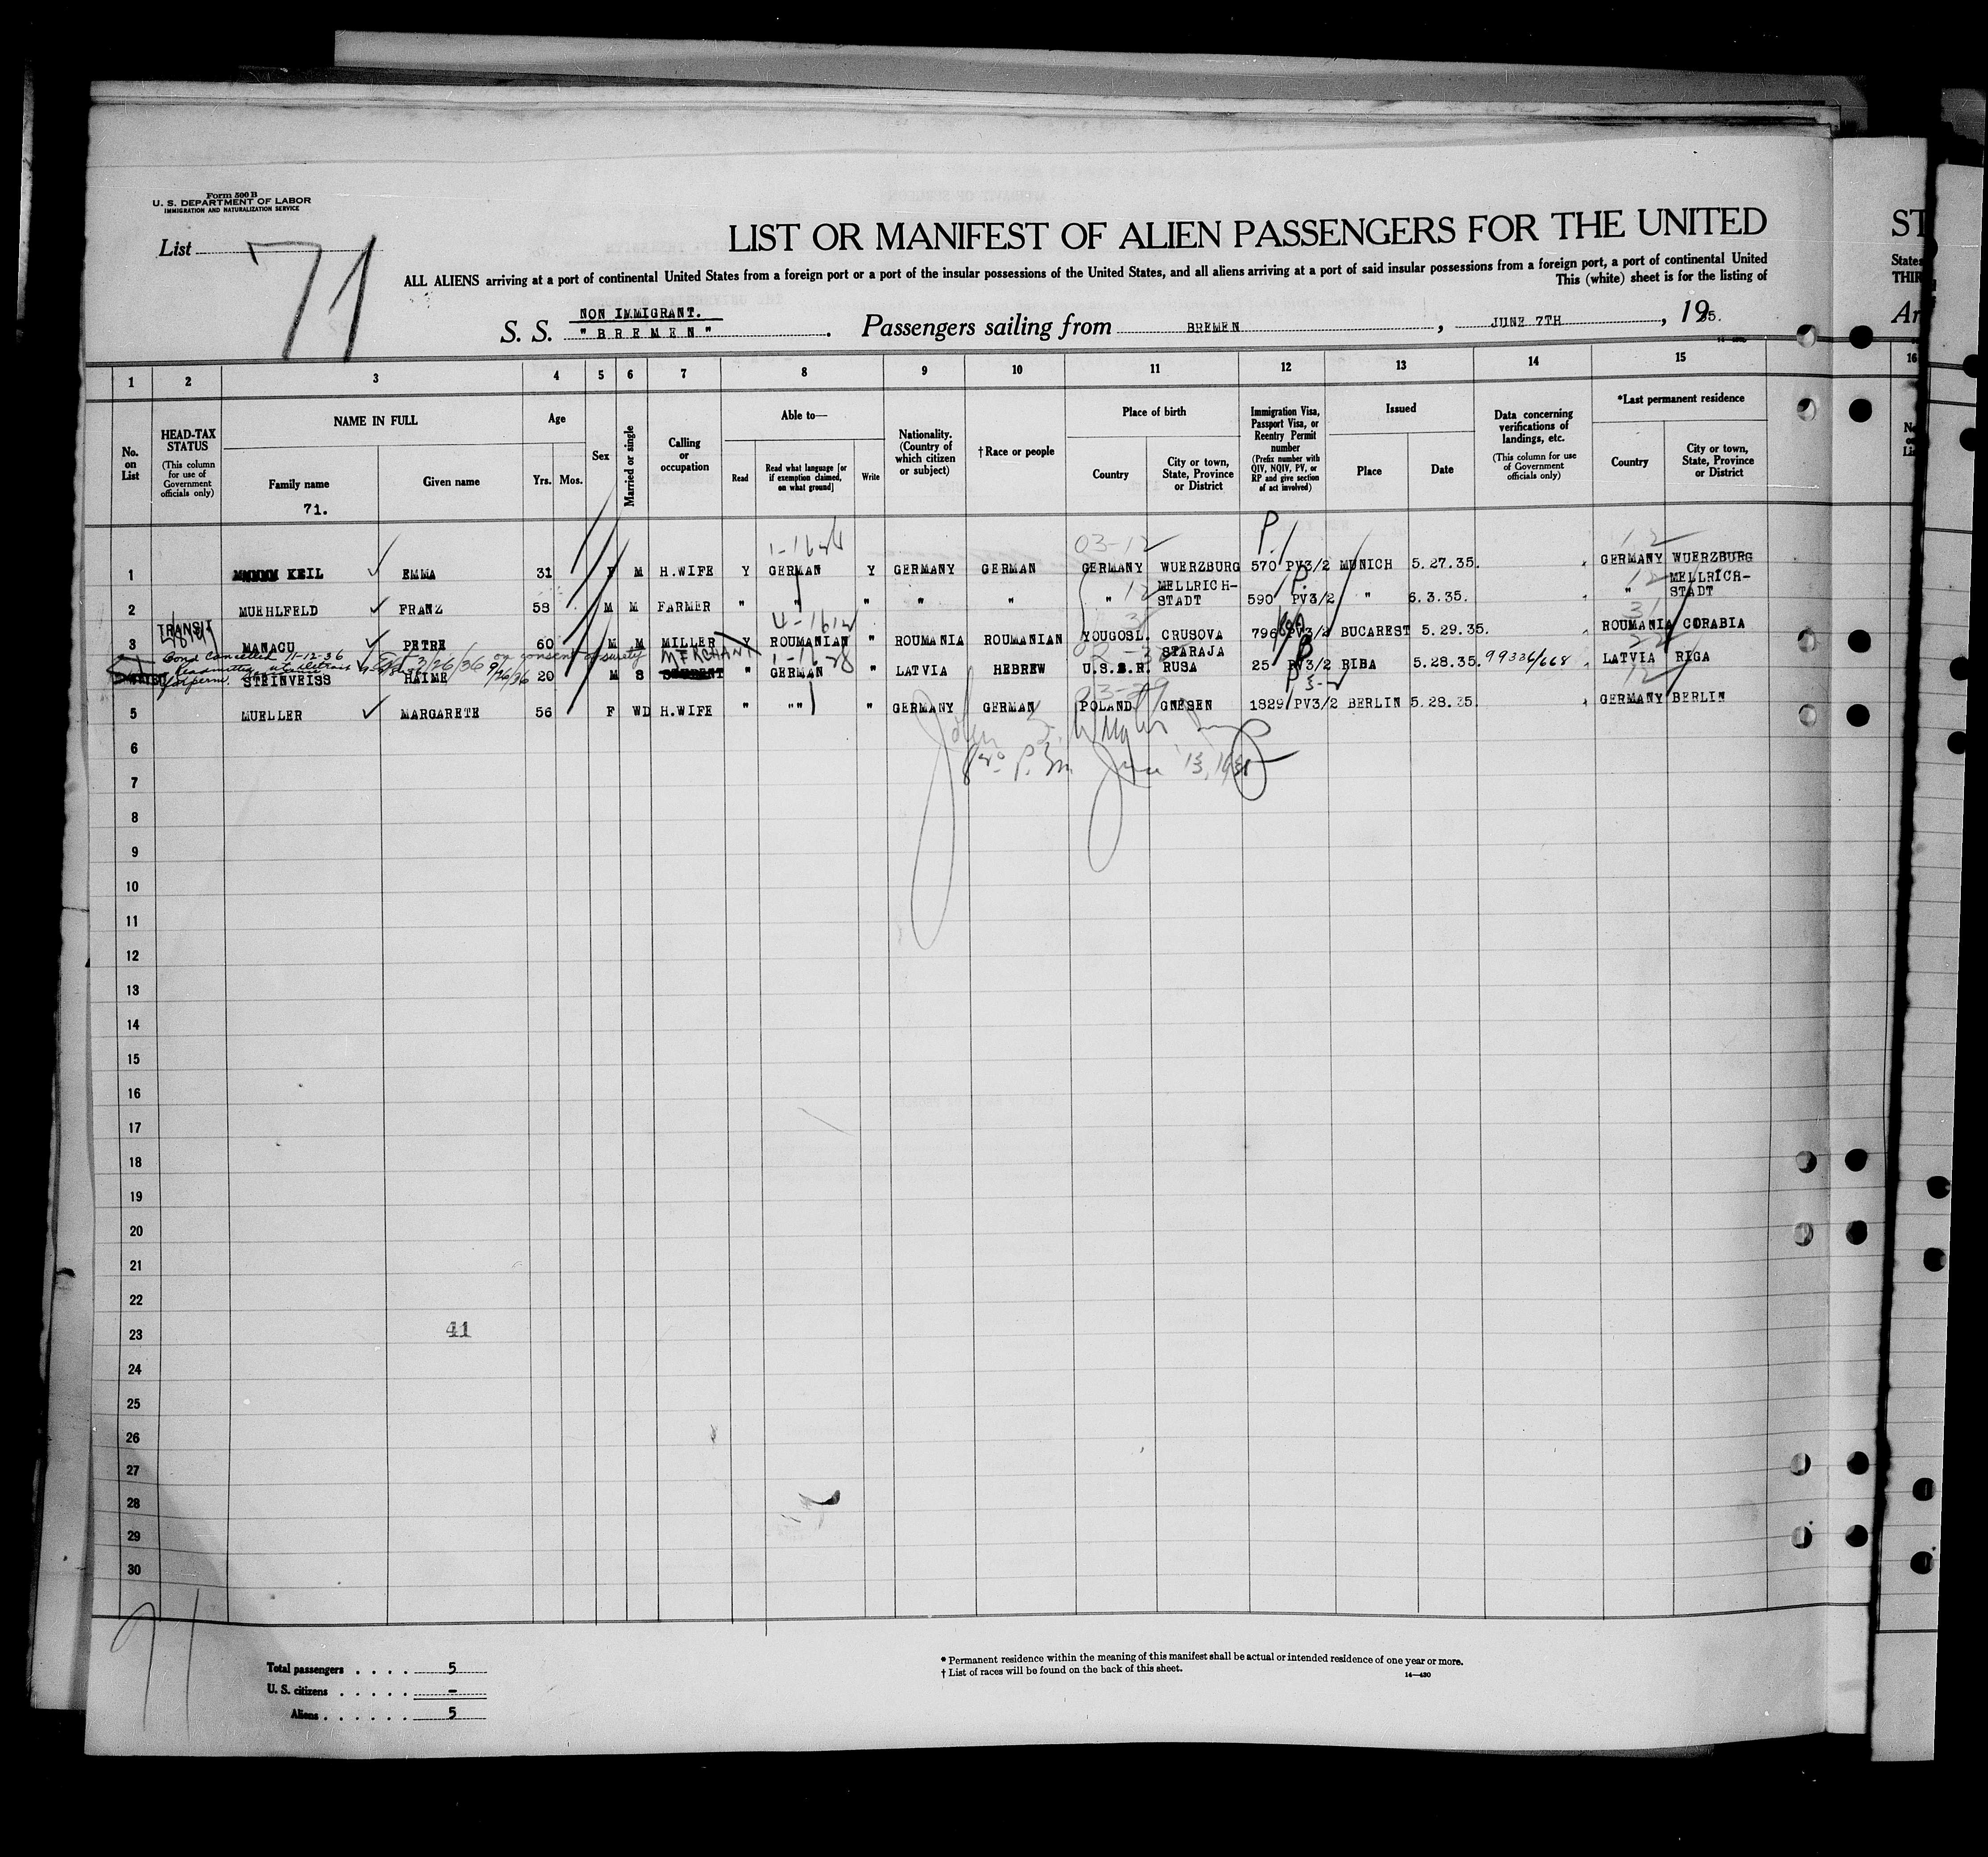 Form 500 B
U. S. DEPARTMENT OF LABOR
IMMIGRATION AND NATURALIZATION SERVICE
List 71
LIST OR MANIFEST OF ALIEN PASSENGERS FOR THE UNITED
ST
ALL ALIENS arriving at a port of continental United States from a foreign port or a port of the insular possessions of the United States, and all aliens arriving at a port of said insular possessions from a foreign port, a port of continental United
States
This (white) sheet is for the listing of
THIR
NON IMMIGRANT.
S. S. "BREMEN". Passengers sailing from BREMEN, JUNE 7TH, 1935.
Ar
1 2 3 4 5 6 7 8 9 10 11 12 13 14 15 16
No. on List
HEAD-TAX STATUS
(This column for use of Government officials only)
NAME IN FULL
Family name
71.
Given name
Age
Yrs. Mos.
Sex
Married or single
Calling or occupation
Able to—
Read
Read what language [or if exemption claimed, on what ground]
Write
Nationality. (Country of which citizen or subject)
† Race or people
Place of birth
Country
City or town, State, Province or District
Immigration Visa, Passport Visa, or Reentry Permit number
(Prefix number with QIV, NQIV, PV, or RP and give section of act involved)
Issued
Place
Date
Data concerning verifications of landings, etc.
(This column for use of Government officials only)
*Last permanent residence
Country
City or town, State, Province or District
P. 03-12 12
1 KEIL EMMA 31 F M H.WIFE Y GERMAN Y GERMANY GERMAN GERMANY WUERZBURG 570 PV3/2 MUNICH 5.27.35. GERMANY WUERZBURG
2 MUEHLFELD FRANZ 58 M M FARMER " " " " " " MELLRICH-STADT 590 PV3/2 " 6.3.35. " MELLRICH-STADT
TRANSIT
3 MANACU PETRE 60 M M MILLER Y ROUMANIAN " ROUMANIA ROUMANIAN YOUGOSL. CRUSOVA 796 PV3/2 BUCAREST 5.29.35. ROUMANIA CORABIA
Bond cancelled 11-12-36 on consent of surety
MERCHANT
STEINVEISS HAIME 20 M S STUDENT " GERMAN " LATVIA HEBREW U.S.S.R. STARAJA RUSA 25 PV3/2 RIBA 5.28.35. 99336/668 LATVIA RIGA
5 MUELLER MARGARETE 56 F WD H.WIFE " "" " GERMANY GERMAN POLAND GNESEN 1829 PV3/2 BERLIN 5.28.35. GERMANY BERLIN
6
7
8
9
10
11
12
13
14
15
16
17
18
19
20
21
22
23 41
24
25
26
27
28
29
30
71
Total passengers . . . . 5
U. S. citizens . . . . . –
Aliens . . . . . . 5
* Permanent residence within the meaning of this manifest shall be actual or intended residence of one year or more.
† List of races will be found on the back of this sheet.
14—430